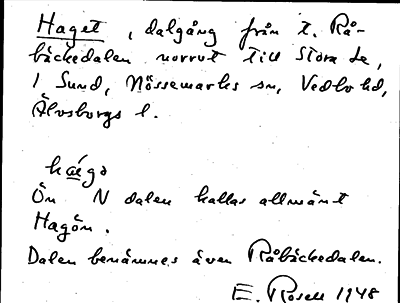 Haget, dalgång från t. Rå-
bäckedalen norrut till Stora Le,
1 Sund, Nössemarks sn, Vedbo hd,
Älvsborgs l.
hæ̂gə
Ön N dalen kallas allmänt
Hagön.
Dalen benämnes även Råbäckedalen.
E. Rosell 1948